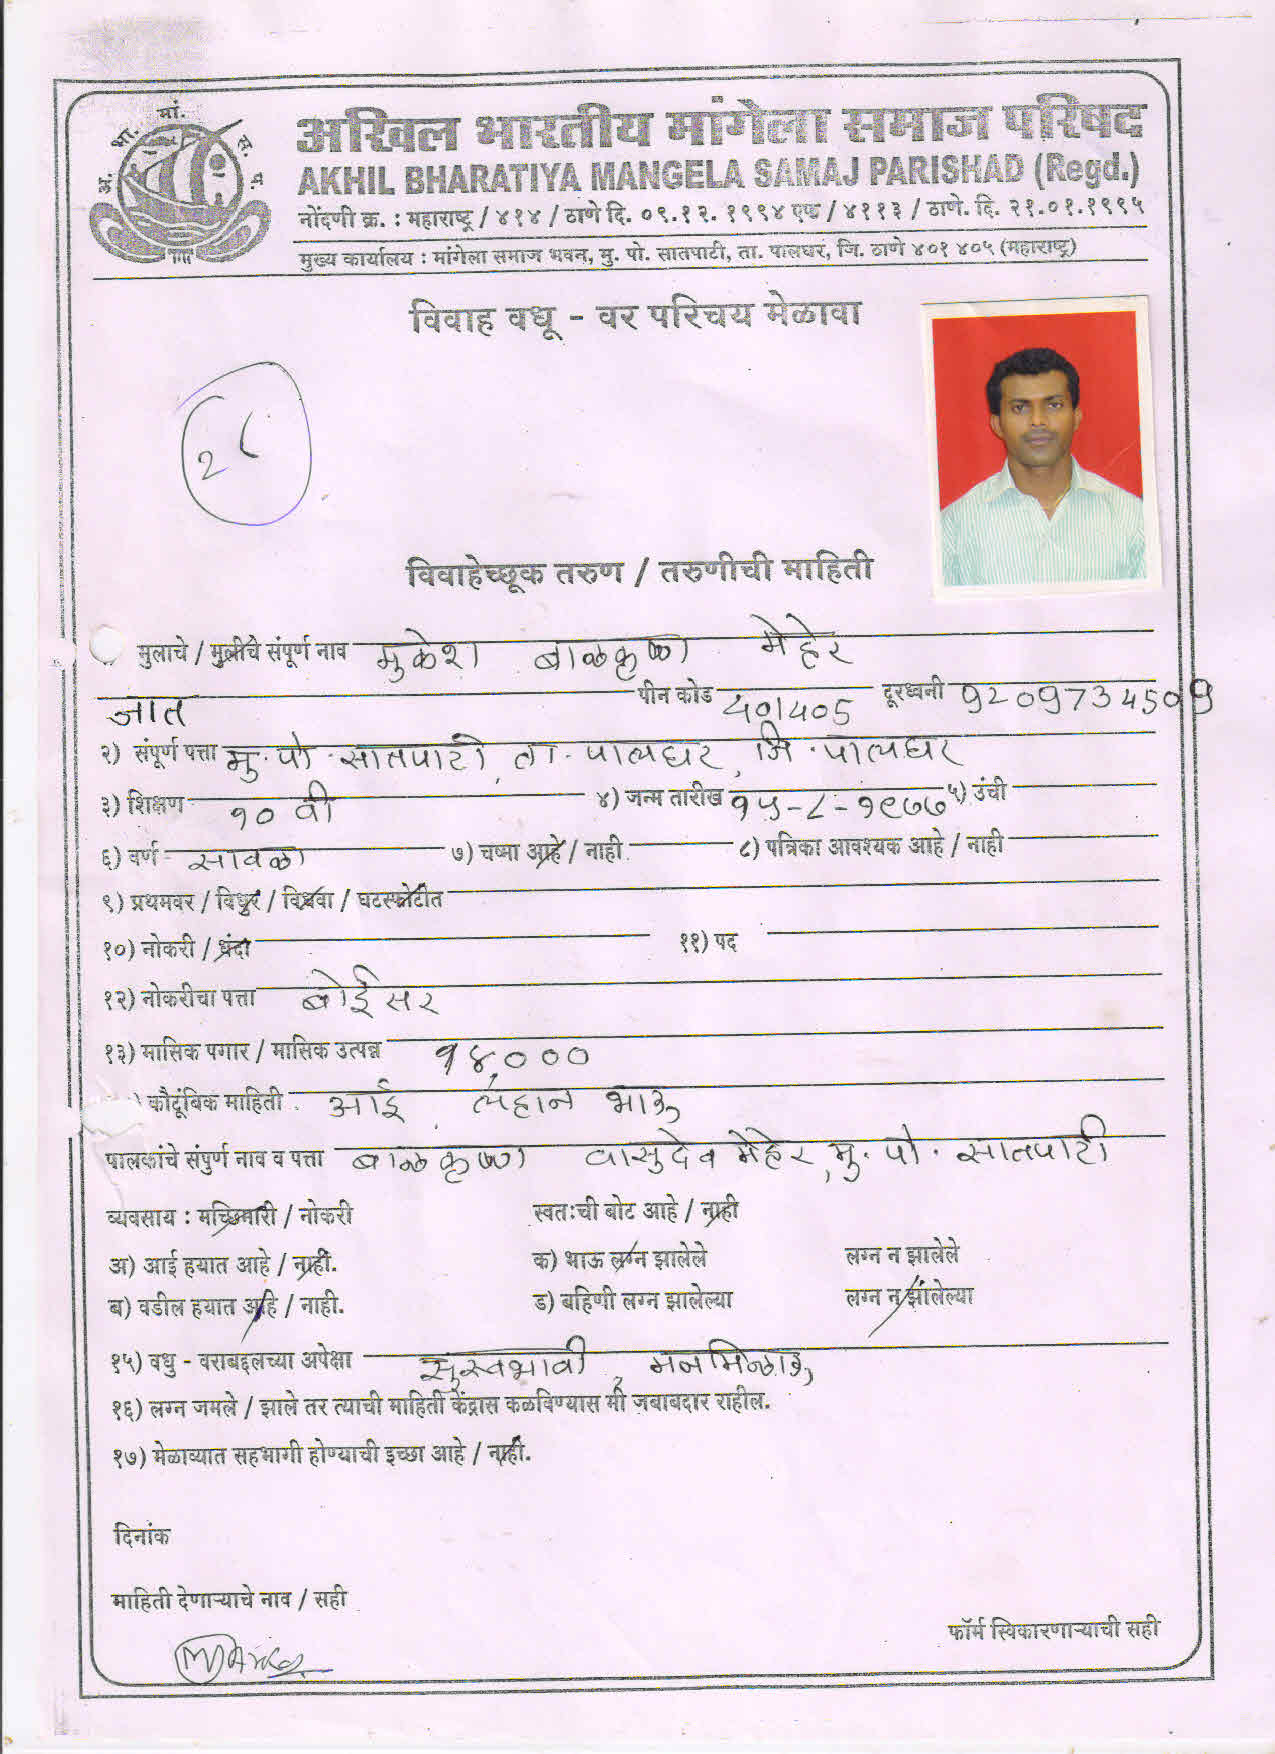 अ. भा. मां. स. प.
अखिल भारतीय मांगेला समाज परिषद
AKHIL BHARATIYA MANGELA SAMAJ PARISHAD (Regd.)
नोंदणी क्र. : महाराष्ट्र / ४१४ / ठाणे दि. ०९.१२. १९९४ एफ / ४११३ / ठाणे. दि. २१.०१.१९९५
मुख्य कार्यालय : मांगेला समाज भवन, मु. पो. सातपाटी, ता. पालघर, जि. ठाणे ४०१ ४०५ (महाराष्ट्र)
विवाह वधू - वर परिचय मेळावा
विवाहेच्छूक तरुण / तरुणीची माहिती
मुलाचे / मुलीचे संपूर्ण नाव मुकेश बाळकृष्ण मेहेर
जात पीन कोड 401405 दूरध्वनी 9209734509
२) संपूर्ण पत्ता मु. पो. सातपाटी, ता. पालघर, जि. पालघर
३) शिक्षण १० वी ४) जन्म तारीख १५-८-१९७७ ५) उंची
६) वर्ण सावळा ७) चष्मा आहे / नाही ८) पत्रिका आवश्यक आहे / नाही
९) प्रथमवर / विधुर / विधवा / घटस्फोटीत
१०) नोकरी / धंदा ११) पद
१२) नोकरीचा पत्ता बोईसर
१३) मासिक पगार / मासिक उत्पन्न १४,०००
) कौटूंबिक माहिती आई लहान भाऊ
पालकांचे संपुर्ण नाव व पत्ता बाळकृष्ण वासुदेव मेहेर, मु. पो. सातपाटी
व्यवसाय : मच्छिमारी / नोकरी स्वतःची बोट आहे / नाही
अ) आई हयात आहे / नाही. क) भाऊ लग्न झालेले लग्न न झालेले
ब) वडील हयात आहे / नाही. ड) बहिणी लग्न झालेल्या लग्न न झालेल्या
१५) वधु - वराबद्दलच्या अपेक्षा सुस्वभावी, मनमिळाऊ
१६) लग्न जमले / झाले तर त्याची माहिती केंद्रास कळविण्यास मी जबाबदार राहील.
१७) मेळाव्यात सहभागी होण्याची इच्छा आहे / नाही.
दिनांक
माहिती देणाऱ्याचे नाव / सही
फॉर्म स्विकारणाऱ्याची सही